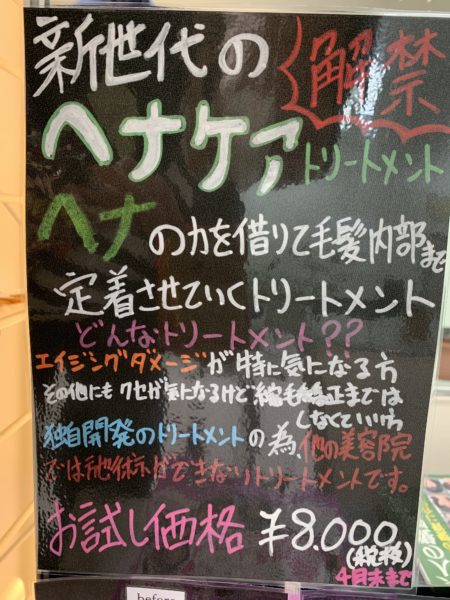 新世代の 解禁
ヘナケアトリートメント
ヘナの力を借りて毛髪内部まで
定着させていくトリートメント
どんなトリートメント??
エイジングダメージが特に気になる方
その他にもクセが気になるけど縮毛矯正までは
しなくていい方
独自開発のトリートメントの為、他の美容院
では施術ができないトリートメントです。
お試し価格 ¥8.000
(税抜)
4月末まで
before